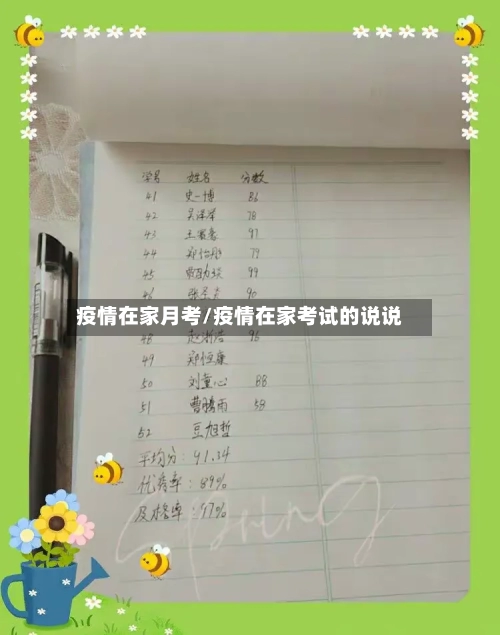 学号 姓名 分数
41 史一博 86
42 吴泽 78
43 王 97
44 郑怡彤 79
45 99
46 张 90
疫情在家月考/疫情在家考试的说说
48 赵 浩 96
49 郑恒康
50 刘童心 88
51 曹鹏雨 58
52 豆旭哲
平均分：91.34
优秀率：89%
及格率：97%
Spring